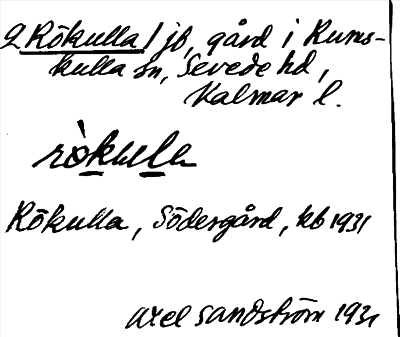 2 Rökulla / jb, gård i Rums-
kulla sn, Sevede hd,
Kalmar l.
rö̀kula
Rökulla, Södergård, kb 1931
Axel Sandström 1931